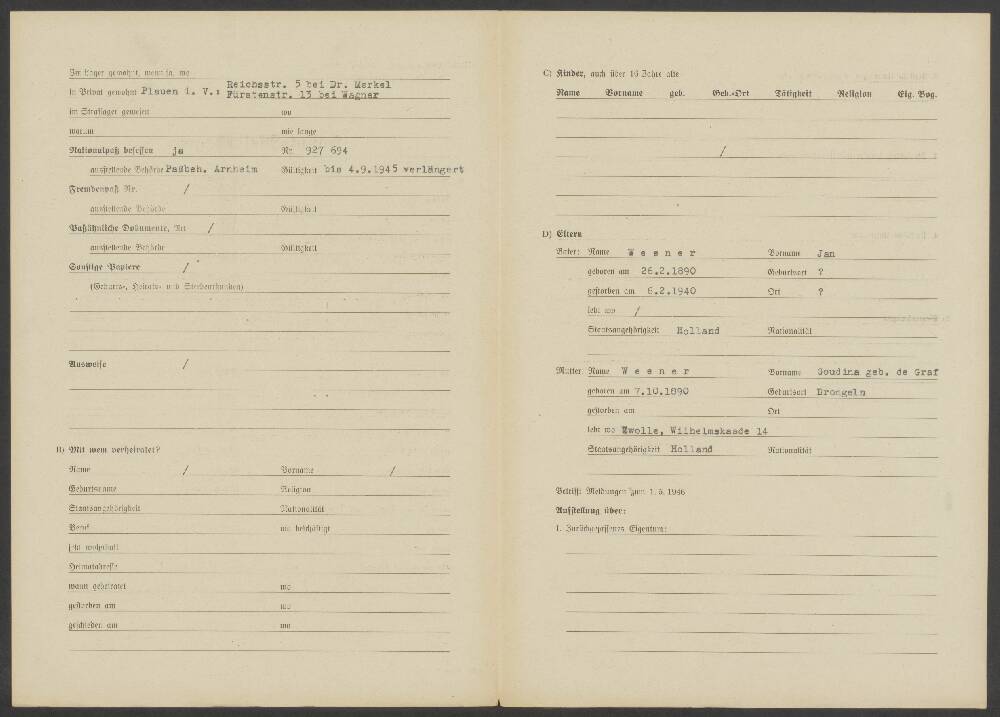 Im Lager gewohnt, wenn ja, wo
in Privat gewohnt Plauen i. V.: Reichsstr. 5 bei Dr. Merkel
Fürstenstr. 13 bei Wagner
im Straflager gewesen wo
warum wie lange
Nationalpaß besessen ja Nr. 927 694
ausstellende Behörde Paßbeh. Arnheim Gültigkeit bis 4.9.1945 verlängert
Fremdenpaß Nr. /
ausstellende Behörde Gültigkeit
Paßähnliche Dokumente, Art /
ausstellende Behörde Gültigkeit
Sonstige Papiere /
(Geburts-, Heirats- und Sterbeurkunden)
Ausweise /
B) Mit wem verheiratet?
Name / Vorname /
Geburtsname Religion
Staatsangehörigkeit Nationalität
Beruf wo beschäftigt
jetzt wohnhaft
Heimatadresse
wann geheiratet wo
gestorben am wo
geschieden am wo
C) Kinder, auch über 16 Jahre alte
Name Vorname geb. Geb.-Ort Tätigkeit Religion Eig. Bog.
/
D) Eltern
Vater: Name W e s n e r Vorname Jan
geboren am 26.2.1890 Geburtsort ?
gestorben am 6.2.1940 Ort ?
lebt wo /
Staatsangehörigkeit Holland Nationalität
Mutter: Name W e s n e r Vorname Goudina geb. de Graf
geboren am 7.10.1890 Geburtsort Drongeln
gestorben am Ort
lebt wo Zwolle, Wilhelmskaade 14
Staatsangehörigkeit Holland Nationalität
Betrifft: Meldungen zum 1. 5. 1946
Aufstellung über:
1. Zurückgelassenes Eigentum: